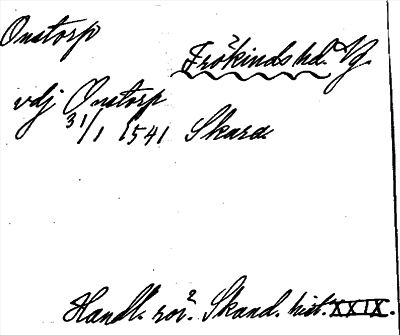 Onstorp
Frökinds hd. Vg.
vdj Onstorp
31/1 1541 Skara
Handl. rör. Skand. hist. XXIX.